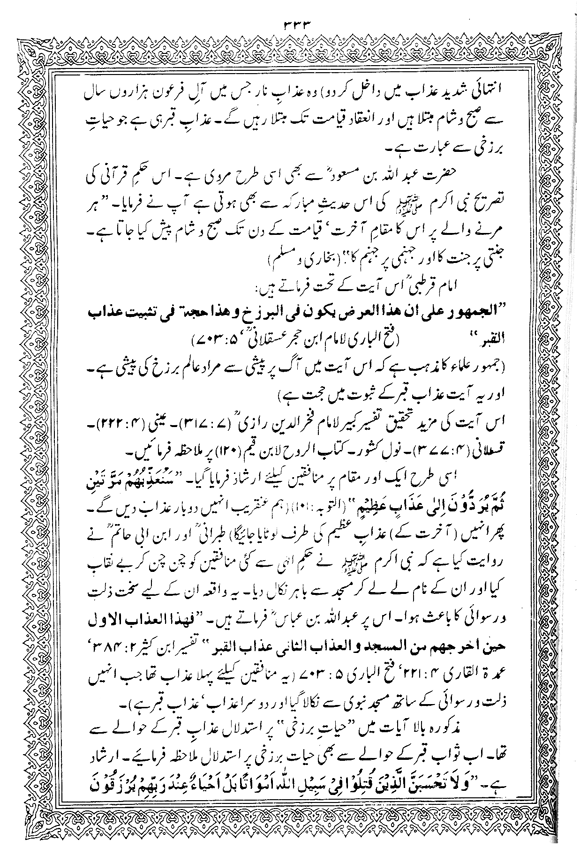 ۳۳۳
انتہائی شدید عذاب میں داخل کر دو) وہ عذابِ نار جس میں آلِ فرعون ہزاروں سال
سے صبح و شام مبتلا ہیں اور انعقادِ قیامت تک مبتلا رہیں گے۔ عذابِ قبر ہی ہے جو حیاتِ
برزخی سے عبارت ہے۔
حضرت عبد اللہ بن مسعودؓ سے بھی اسی طرح مروی ہے۔ اس حکمِ قرآنی کی
تصریح نبی اکرم ﷺ کی اس حدیثِ مبارکہ سے بھی ہوتی ہے آپ نے فرمایا۔ "ہر
مرنے والے پر اس کا مقامِ آخرت' قیامت کے دن تک صبح و شام پیش کیا جاتا ہے۔
جنتی پر جنت کا اور جہنمی پر جہنم کا"۔ (بخاری و مسلم)
امام قرطبیؒ اس آیت کے تحت فرماتے ہیں:
"الجمہور علی ان ھذا العرض یکون فی البرزخ وھذا حجۃ فی تثبیت عذاب
القبر" (فتح الباری لامام ابن حجر عسقلانیؒ' ۵:۷۰۳)
(جمہور علماء کا مذہب ہے کہ اس آیت میں آگ پر پیشی سے مراد عالمِ برزخ کی پیشی ہے۔
اور یہ آیت عذابِ قبر کے ثبوت میں حجت ہے)
اس آیت کی مزید تحقیق تفسیر کبیر لامام فخر الدین رازیؒ (۷:۳۱۷)۔ عینی (۴:۲۲۲)۔
قسطلانی (۴:۳۷۷)۔ نول کشور۔ کتاب الروح لابن قیم (۱۲۰) پر ملاحظہ فرمائیں۔
اسی طرح ایک اور مقام پر منافقین کیلئے ارشاد فرمایا گیا۔ "سَنُعَذِّبُهُمْ مَرَّتَيْنِ
ثُمَّ يُرَدُّوْنَ اِلٰى عَذَابٍ عَظِيْمٍ" (التوبہ:۱۰۱) (ہم عنقریب انہیں دوبار عذاب دیں گے۔
پھر انہیں (آخرت کے) عذابِ عظیم کی طرف لوٹایا جائیگا) طبرانیؒ اور ابن ابی حاتمؒ نے
روایت کیا ہے کہ نبی اکرم ﷺ نے حکمِ الٰہی سے کئی منافقین کو چن چن کر بے نقاب
کیا اور ان کے نام لے لے کر مسجد سے باہر نکال دیا۔ یہ واقعہ ان کے لیے سخت ذلت
و رسوائی کا باعث ہوا۔ اس پر عبداللہ بن عباسؓ فرماتے ہیں۔ "فھذا العذاب الاول
حین اخرجھم من المسجد و العذاب الثانی عذاب القبر" تفسیر ابن کثیر ۲:۳۸۴'
عمدۃ القاری ۴:۲۲۱' فتح الباری ۵:۷۰۳ (یہ منافقین کیلئے پہلا عذاب تھا جب انہیں
ذلت و رسوائی کے ساتھ مسجدِ نبوی سے نکالا گیا اور دوسرا عذاب' عذابِ قبر ہے)۔
مذکورہ بالا آیات میں "حیاتِ برزخی" پر استدلال عذابِ قبر کے حوالے سے
تھا۔ اب ثوابِ قبر کے حوالے سے بھی حیاتِ برزخی پر استدلال ملاحظہ فرمائیے۔ ارشاد
ہے۔ "وَلَا تَحْسَبَنَّ الَّذِيْنَ قُتِلُوْا فِيْ سَبِيْلِ اللّٰهِ اَمْوَاتًا بَلْ اَحْيَاءٌ عِنْدَ رَبِّهِمْ يُرْزَقُوْنَ